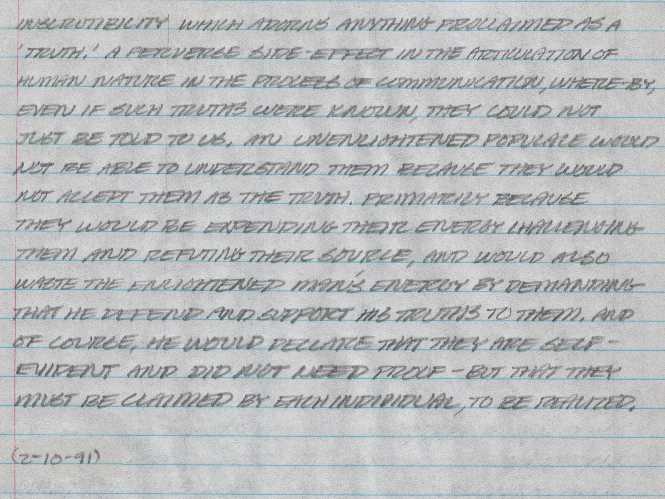 INSCRUTIBILITY WHICH ADORNS ANYTHING PROCLAIMED AS A
'TRUTH.' A PERVERSE SIDE-EFFECT IN THE ARTICULATION OF
HUMAN NATURE IN THE PROCESS OF COMMUNICATION, WHERE-BY,
EVEN IF SUCH TRUTHS WERE KNOWN, THEY COULD NOT
JUST BE TOLD TO US. AN UNENLIGHTENED POPULACE WOULD
NOT BE ABLE TO UNDERSTAND THEM BECAUSE THEY WOULD
NOT ACCEPT THEM AS THE TRUTH. PRIMARILY BECAUSE
THEY WOULD BE EXPENDING THEIR ENERGY CHALLENGING
THEM AND REFUTING THEIR SOURCE, AND WOULD ALSO
WASTE THE ENLIGHTENED MAN'S ENERGY BY DEMANDING
THAT HE DEFEND AND SUPPORT HIS TRUTHS TO THEM. AND
OF COURSE, HE WOULD DECLARE THAT THEY ARE SELF-
EVIDENT AND DID NOT NEED PROOF - BUT THAT THEY
MUST BE CLAIMED BY EACH INDIVIDUAL, TO BE REALIZED.
(2-10-91)